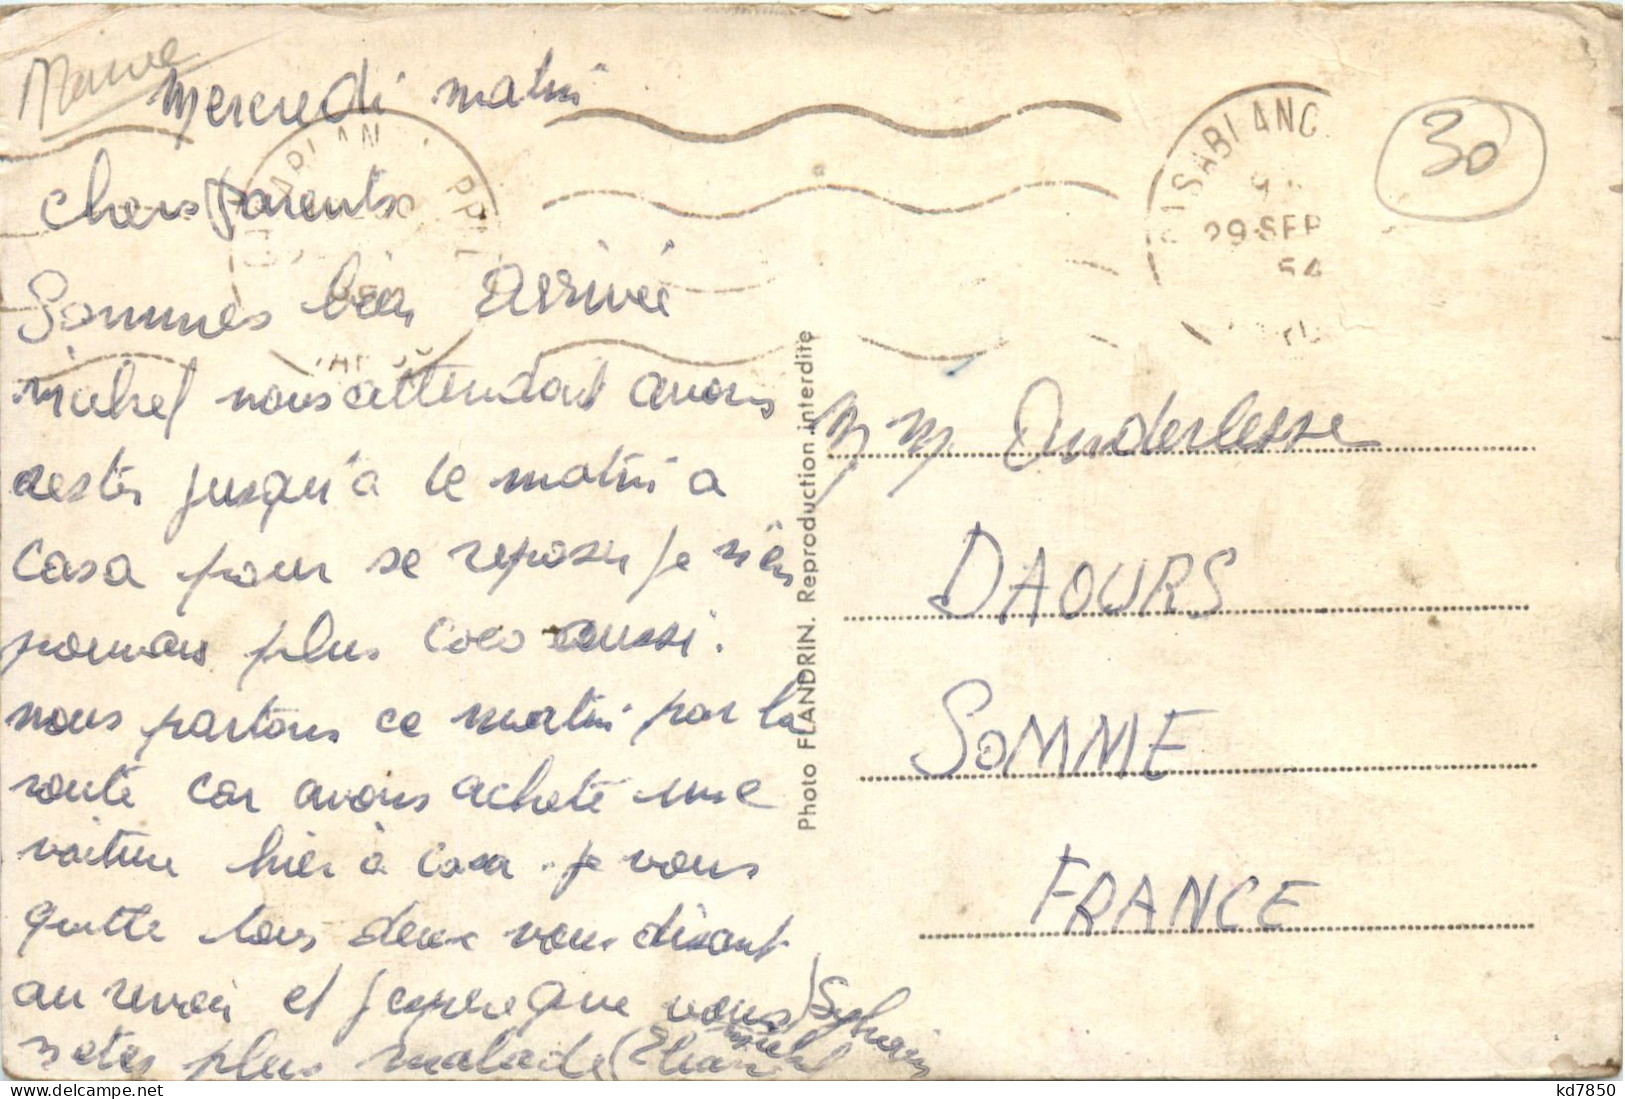 Mercredi matin
chers parents
Sommes bien Arrivé
michel nous attendait avons
restés jusqu'a le matin a
Casa pour se reposer je n'en
pouvais plus Coco aussi.
nous partons ce matin par la
route car avons acheté une
voiture hier à casa. je vous
quitte tous deux vous disant
au revoir et j'espere que vous
n'etes plus malade (
Sylvain
Photo FLANDRIN. Reproduction interdite
30
29 SEP
54
M M Anderlesse
DAOURS
SOMME
FRANCE
kd7850